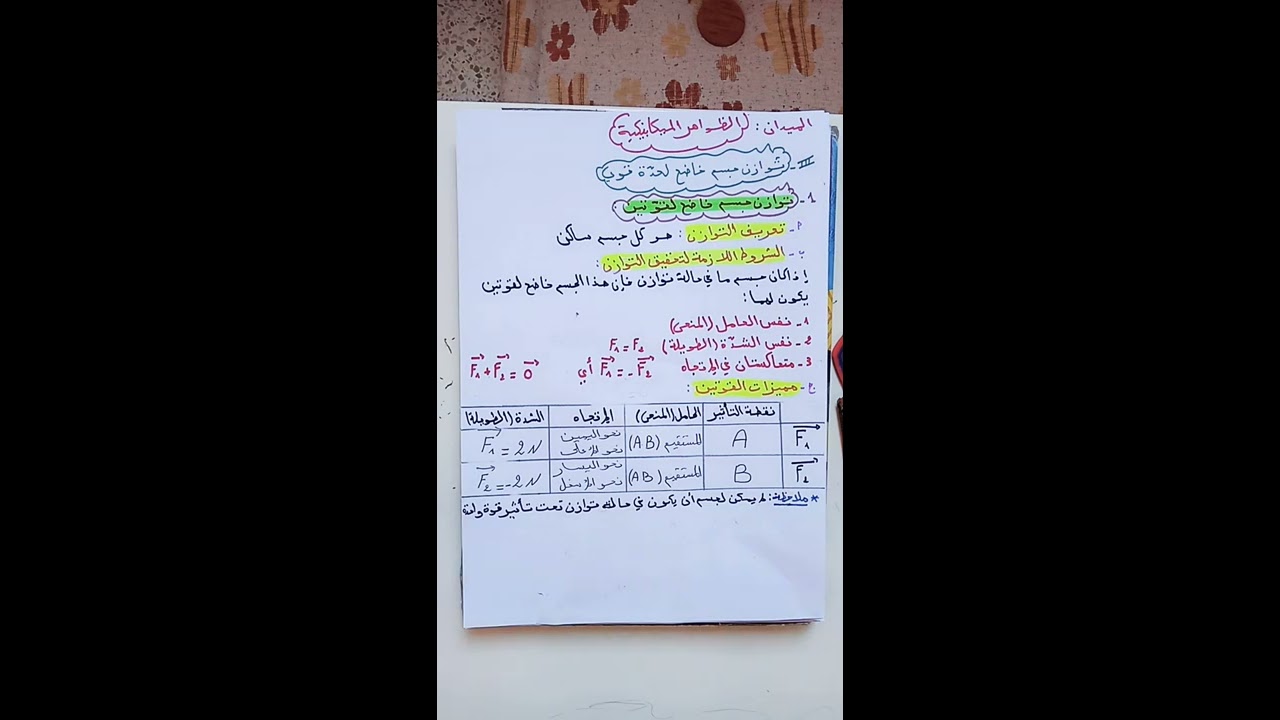 الميدان: الظواهر الميكانيكية
III- توازن جسم خاضع لعدّة قوى
1- توازن جسم خاضع لقوتين:
أ- تعريف التوازن: هو كل جسم ساكن
ب- الشروط اللازمة لتحقيق التوازن:
إذا كان جسم ما في حالة توازن فإن هذا الجسم خاضع لقوتين
يكون لهما:
1- نفس الحامل (المنحى)
2- نفس الشدّة (الطويلة) F₁ = F₂
3- متعاكستان في الإتجاه F₁→ = -F₂→ أي F₁→ + F₂→ = 0→
ج- مميزات القوتين:
نقطة التأثير الحامل (المنحى) الإتجاه الشدة (الطويلة)
F₁→ A المستقيم (AB) نحو اليمين نحو الأعلى F₁→ = 2N
F₂→ B المستقيم (AB) نحو اليسار نحو الأسفل F₂→ = -2N
* ملاحظة: لا يمكن لجسم أن يكون في حالة توازن تحت تأثير قوة واحدة